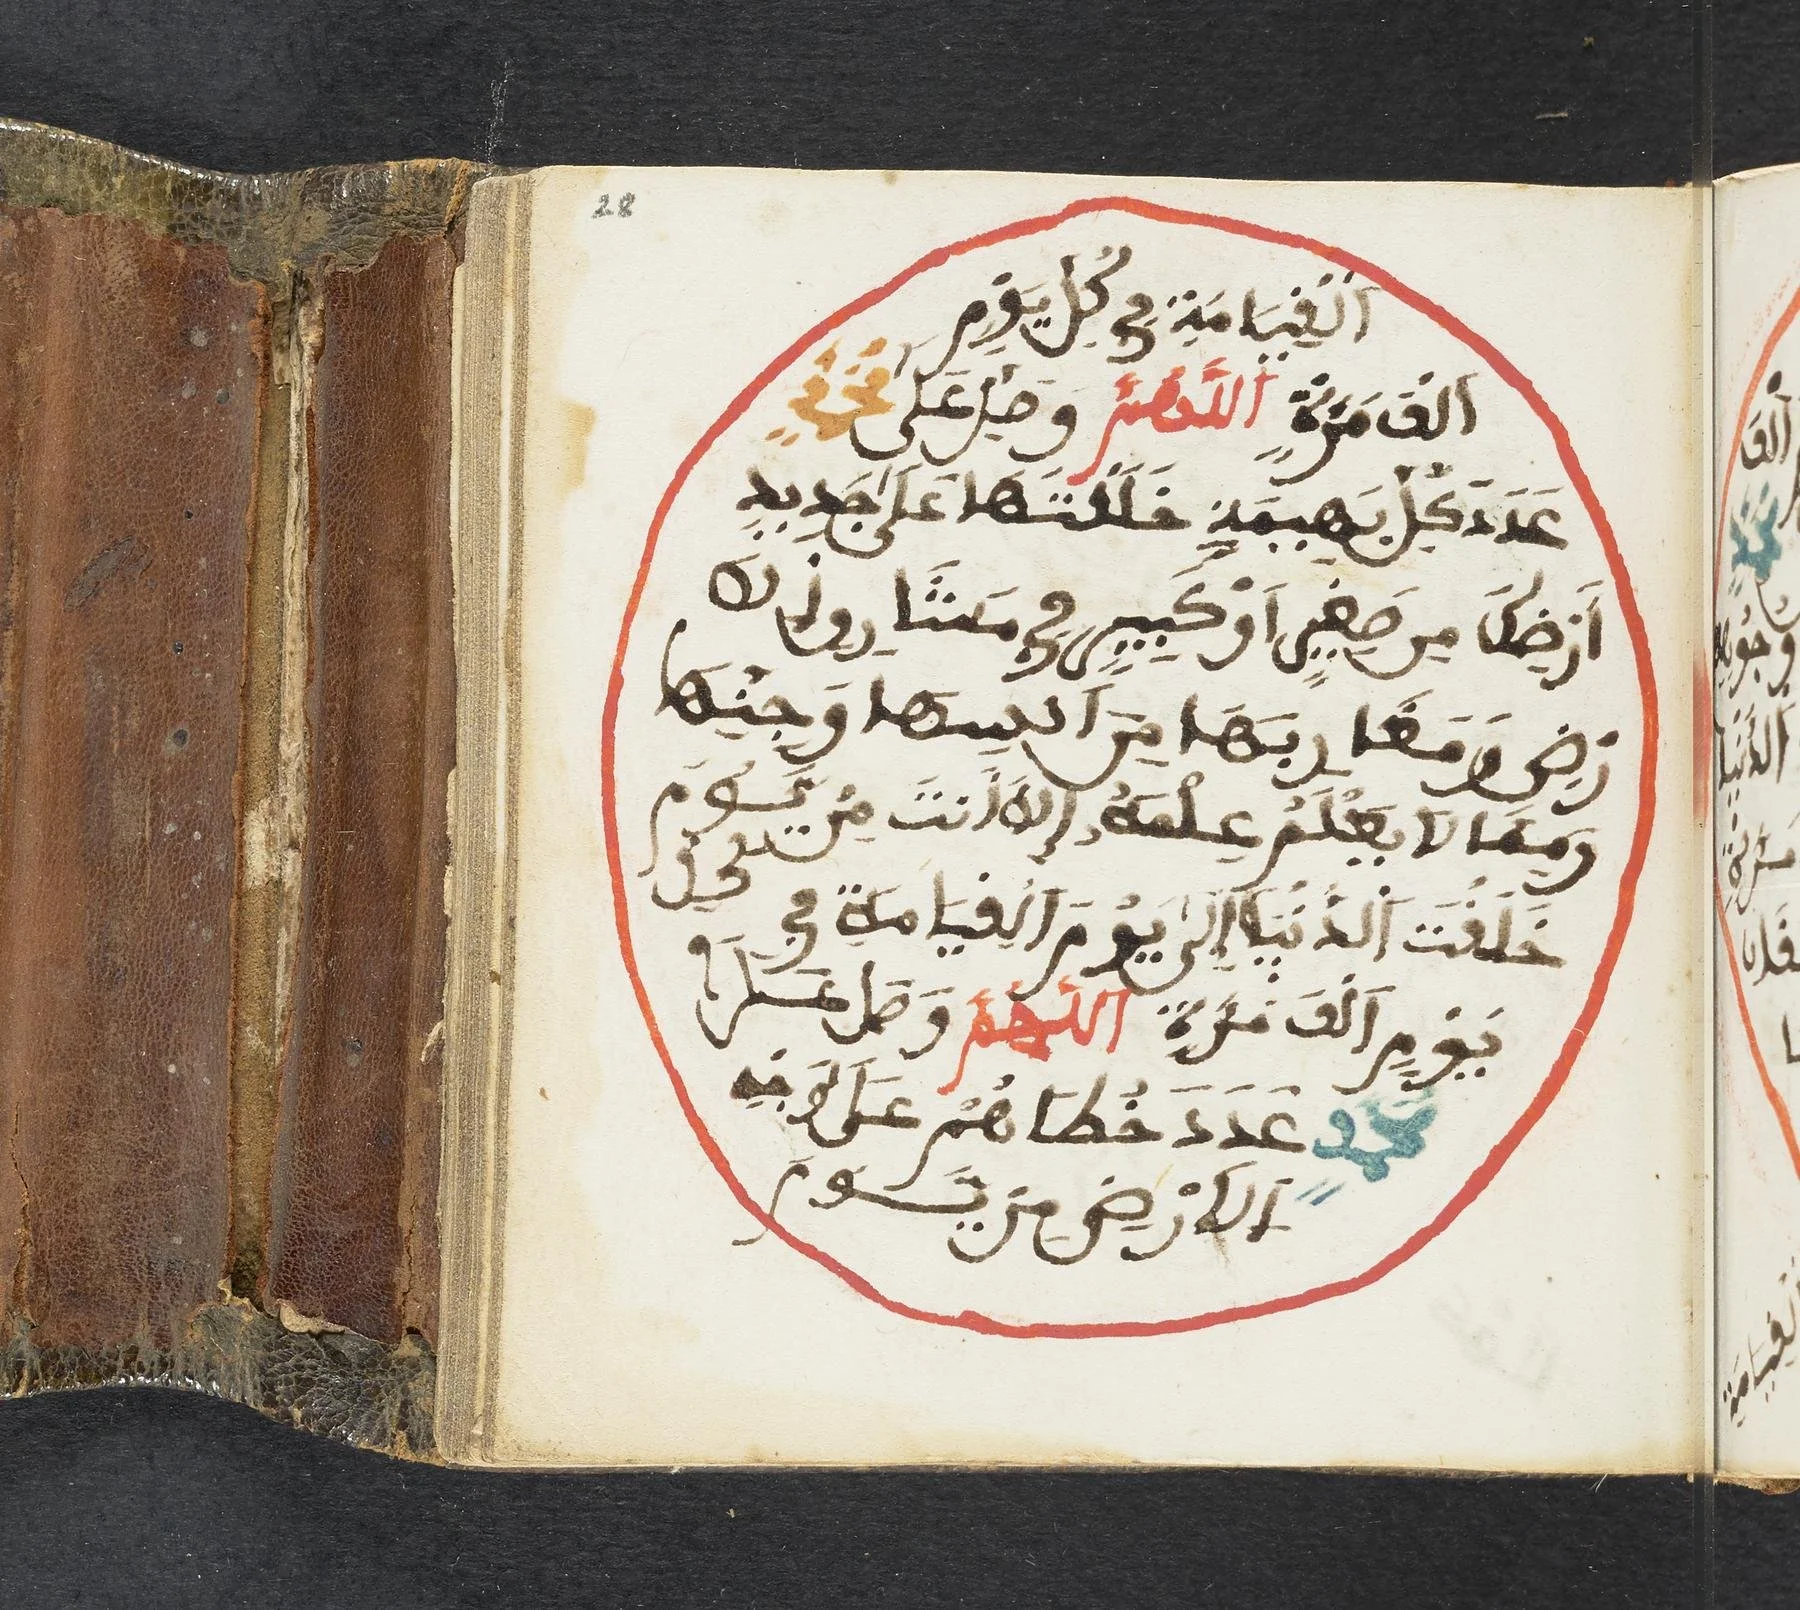 28
الْقِيَامَةِ فِي كُلِّ يَوْمٍ
اَلْفَ مَرَّةٍ اَللَّهُمَّ وَصَلِّ عَلَى مُحَمَّدٍ
عَدَدَ كُلِّ بَهِيمَةٍ خَلَقْتَهَا عَلَى جَدِيدِ
اَرْضِكَ مِن صَغِيرٍ اَوْ كَبِيرٍ فِي مَشَارِقِ الَا
رْضِ وَمَغَارِبِهَا مِنْ اِنسِهَا وَجِنِّهَا
وَمِمَّا لَا يَعْلَمُ عِلْمَهُ إِلَّا أَنتَ مِنْ يَوْمَ
خَلَقْتَ اَلدُّنْيَا إِلَى يَوْمِ اَلْقِيَامَةِ فِي كُلِّ
يَوْمٍ اَلْفَ مَرَّةٍ اَللَّهُمَّ وَصَلِّ عَلَى
مُحَمَّدٍ عَدَدَ خُطَاهُمْ عَلَى وَجْهِ
اَلَارْضِ مِنْ يَوْمَ